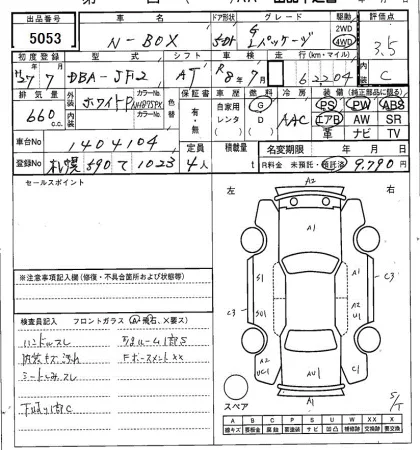 出品番号 車名 ドア形状 グレード 駆動 評価点
5053 N-BOX 5D G Lパッケージ 2WD 4WD 3.5
初度登録 型式 シフト 車検 走行(km・マイル) 内装
H27/7 DBA-JF2 AT R8年7月 62204 C
排気量 外装色 色替 保証書 車歴 燃料 冷房 装備(純正部品に限る)
660c.c. ホワイトP NH875PX 有・無 自家用 レンタ G D AAC PS PW ABS
エアB AW SR
革 ナビ TV
内装
車台No 1404104 定員 積載量 名変期限 年 月 日
登録No 札幌 590 て 1023 4人 t R料金 未預託・預託済 9,790円
セールスポイント
左 右
A2
A1
S1 A1
C3 C3
SU1 A2 U1
A2 UC1 A1 AU1 C1
A1
スペア
S/T
※注意事項記入欄(修復・不具合箇所および状態等)
検査員記入 フロントガラス(A・飛石、×要ス)
ハンドルスレ
内装キズ汚れ
シートシミスレ
下廻り小C
A B C P S U W X XX X
線キズ 要板金 腐蝕 要塗装 サビ 凹凸 補修跡 交換跡 要交換